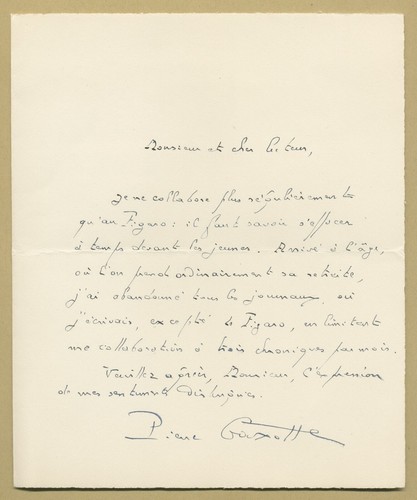 Monsieur et cher lecteur,
Je ne collabore plus régulièrement
qu'au Figaro : il faut savoir s'effacer
à temps devant les jeunes. Arrivé à l'âge,
où l'on prend ordinairement sa retraite,
j'ai abandonné tous les journaux, où
j'écrivais, excepté le Figaro, en limitant
ma collaboration à trois chroniques par mois.
Veuillez agréer, Monsieur, l'expression
de mes sentiments distingués.
Pierre Gaxotte